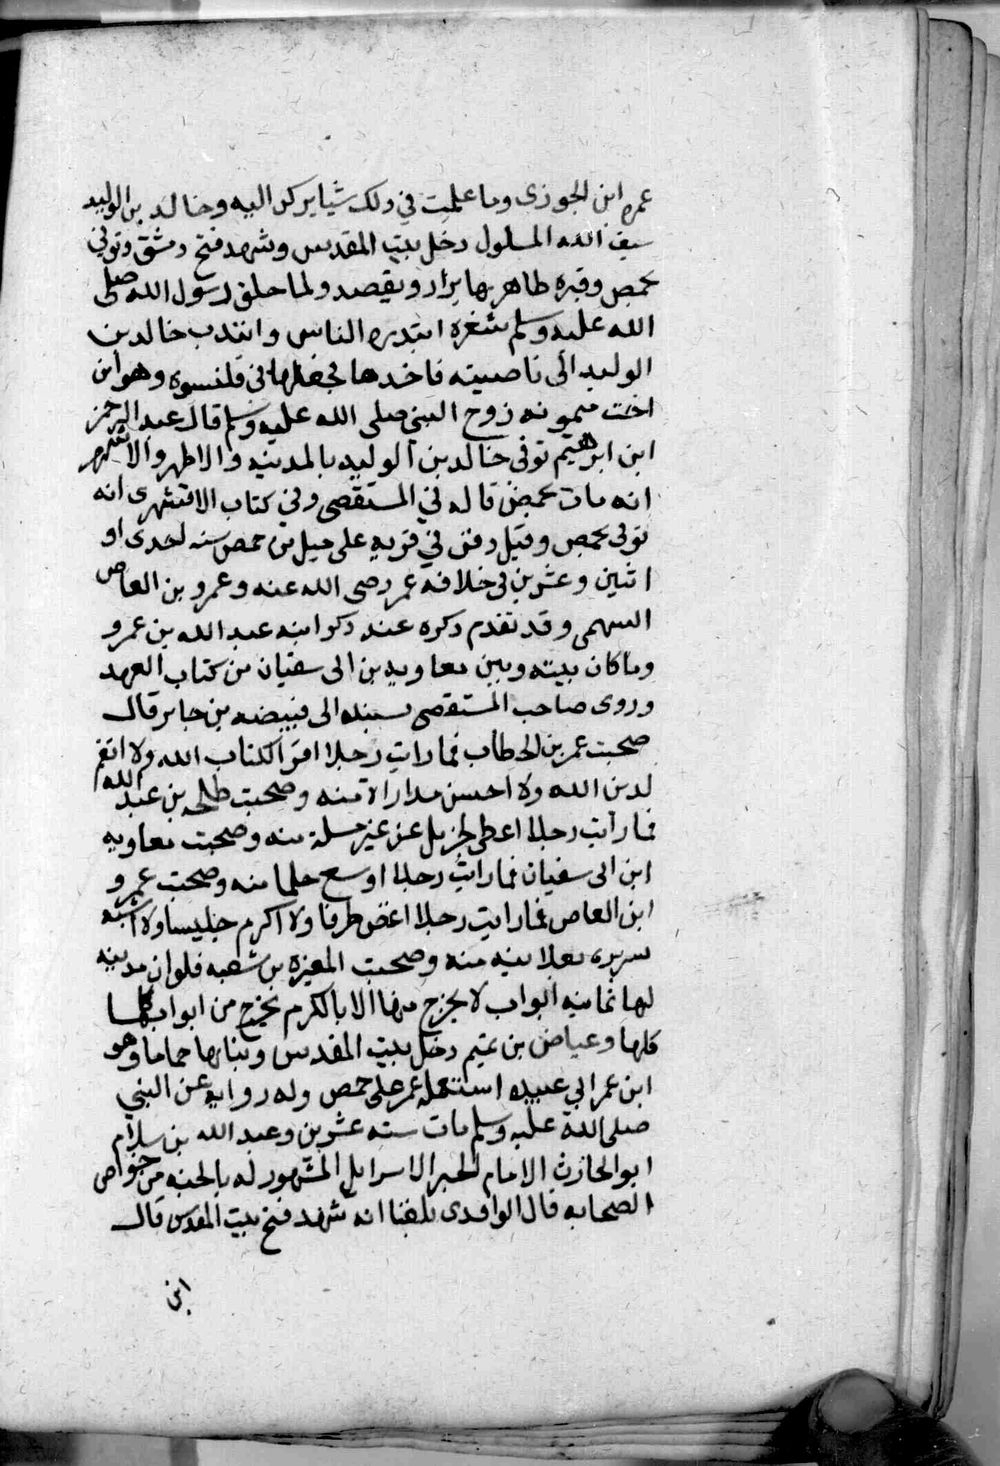 عمره ابن الجوزى وما علمت في ذلك شيا يركن اليه وخالد بن الوليد
سيف الله المسلول دخل بيت المقدس وشهد فتح دمشق وتوفي
بحمص وقبره ظاهر بها يزار ويقصد ولما حلق رسول الله صلى
الله عليه وسلم شعره ابتدره الناس وانتدب خالد بن
الوليد الى ناصيته فاخدها فجعلها في قلنسوه وهو ابن
اخت ميمونه زوج النبي صلى الله عليه وسلم قال عبد الرحمن
ابن ابرهيم توفى خالد بن الوليد بالمدينه والاظهر والاشهر
انه مات بحمص قاله في المستقصى وفي كتاب الاقشهرى انه
توفى بحمص وقيل دفن في قريه على ميل من حمص سنه احدى او
اثنين وعشرين في خلافه عمر رضى الله عنه وعمرو بن العاص
السهمى وقد تقدم ذكره عند ذكر ابنه عبد الله بن عمرو
وما كان بينه وبين معاويه بن ابى سفيان من كتاب العهد
وروى صاحب المستقصى بسنده الى قبيضه بن جابر قال
صحبت عمر بن الخطاب فما رايت رجلا اقرا لكتاب الله ولا افقه
لدين الله ولا احسن مداراة منه وصحبت طلحه بن عبد الله
فما رايت رجلا اعطى لجزيل عن غير مسلة منه وصحبت معاويه
ابن ابى سفيان فما رايت رجلا اوسع حلما منه وصحبت عمرو
ابن العاص فما رايت رجلا اغض طرفا ولا اكرم جليسا ولا اشبه
سريره بعلانيه منه وصحبت المغيره بن شعبه فلو ان مدينه
لها ثمانيه ابواب لا يخرج منها الا بالكرم لخرج من ابوابها كلها
كلها وعياض بن غنيم دخل بيت المقدس وبنا بها حماما وهو
ابن عم ابي عبيده استعمله عمر على حمص وله روايه عن النبي
صلى الله عليه وسلم مات سنه عشرين وعبد الله بن سلام
ابو الحارث الامام الحبر الاسرايلى المشهور له بالجنه من خواص
الصحابه قال الواقدى بلغنا انه شهد فتح بيت المقدس قال
ابن